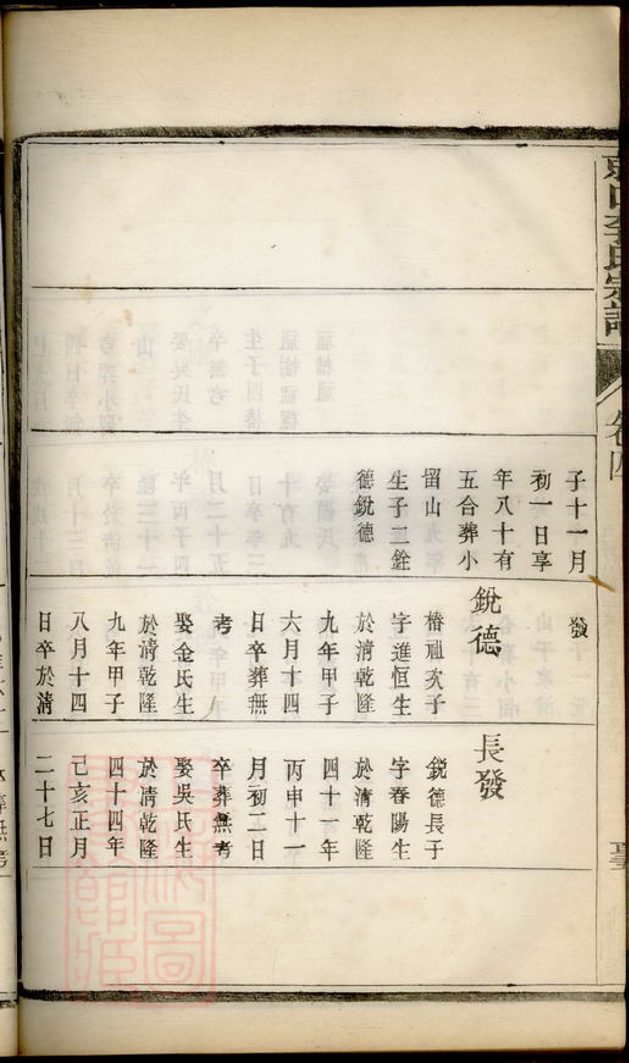 李氏宗譜
卷四
子十一月
初一日享
年八十有
五合葬小
留山
生子二銓
德銳德
發
銳德
椿祖次子
字進恒生
於清乾隆
九年甲子
六月十四
日卒葬無
考
娶金氏生
於清乾隆
九年甲子
八月十四
日卒於清
長發
銳德長子
字春陽生
於清乾隆
四十一年
丙申十一
月初二日
卒葬無考
娶吳氏生
於清乾隆
四十四年
己亥正月
二十七日